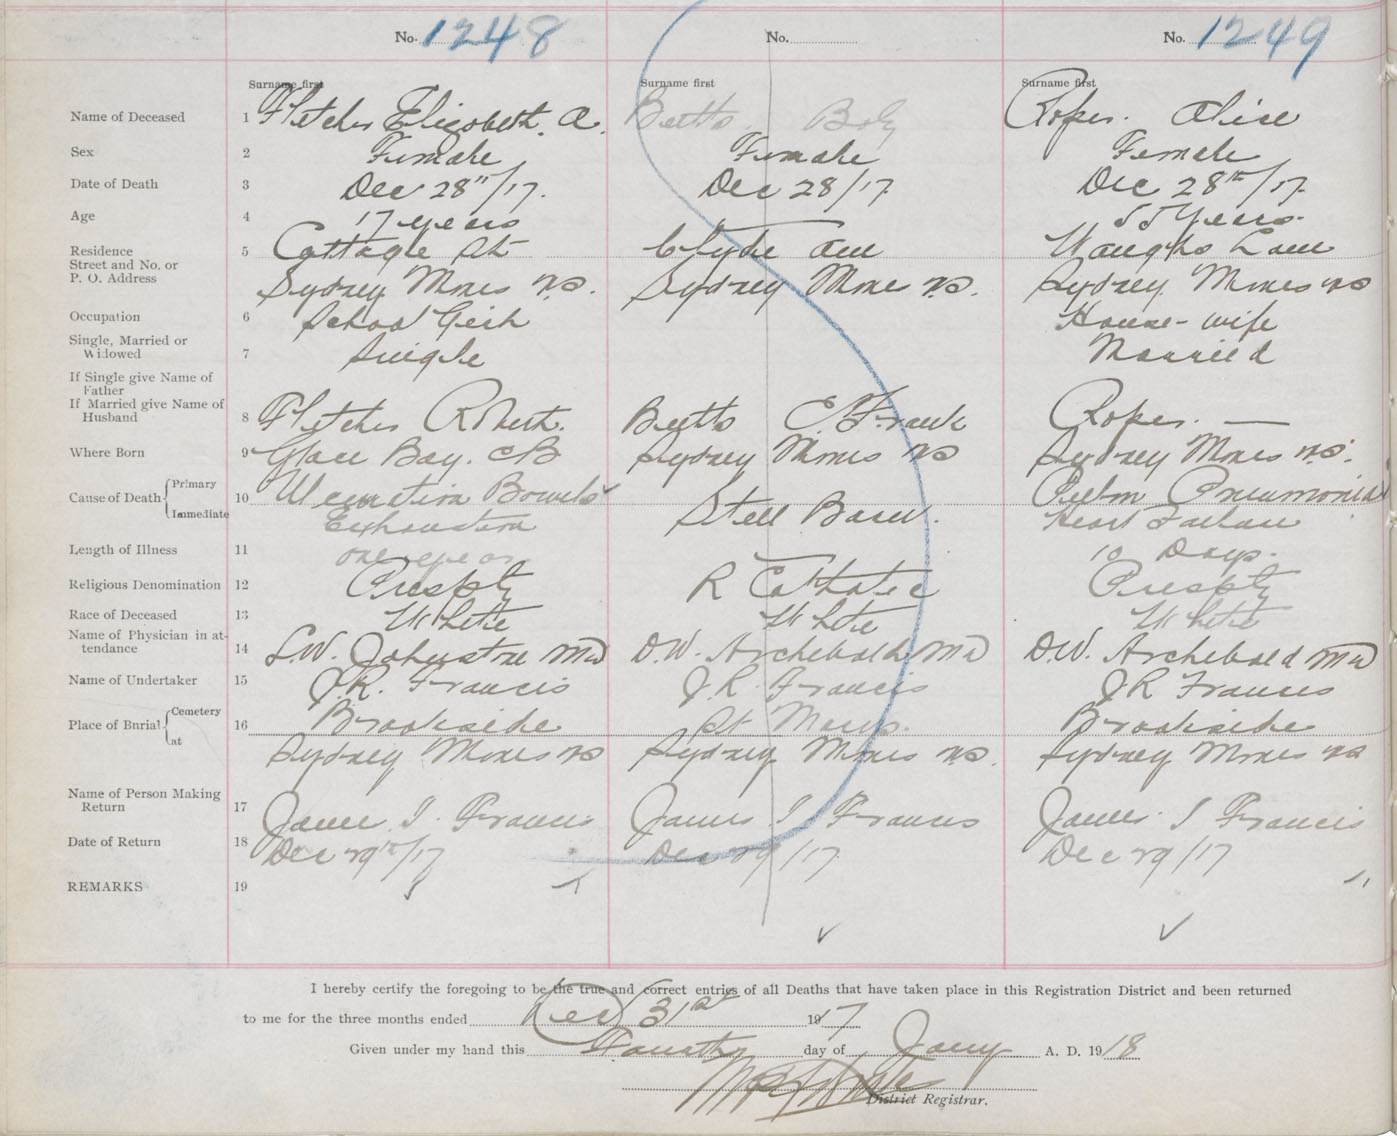 No. 1248 No. No. 1249
Surname first Surname first Surname first
Name of Deceased 1 Fletcher Elizabeth. A. Betts Boby Roper. Alice
Sex 2 Female Female Female
Date of Death 3 Dec 28th/17. Dec 28/17 Dec 28th/17
Age 4 17 years 55 Years.
Residence 5 Cottage St Clyde Ave Waughs Lane
Street and No. or
P. O. Address Sydney Mines N.S. Sydney Mines N.S. Sydney Mines NS
Occupation 6 School Girl House-wife
Single, Married or
Widowed 7 Single Married
If Single give Name of
Father
If Married give Name of
Husband 8 Fletcher Robert. Betts E. Frank Roper. —
Where Born 9 Glace Bay. CB Sydney Mines NS Sydney Mines N.S.
Cause of Death Primary 10 Ulceration Bowels Pneumonia
Immediate Exhaustion Still Born. Heart Failure
Length of Illness 11 one year 10 Days.
Religious Denomination 12 Presbty R Catholic Presbty
Race of Deceased 13 White White White
Name of Physician in at-
tendance 14 L.W. Johnstone MD D.W. Archibald MD D.W. Archibald MD
Name of Undertaker 15 J.R. Francis J.R. Francis J R Francis
Place of Burial Cemetery 16 Brookside St Marys. Brookside
at Sydney Mines NS Sydney Mines N.S. Sydney Mines NS
Name of Person Making
Return 17 James. J. Francis James J Francis James J Francis
Date of Return 18 Dec 29th/17 Dec 29/17 Dec 29/17
REMARKS 19
I hereby certify the foregoing to be the true and correct entries of all Deaths that have taken place in this Registration District and been returned
to me for the three months ended Dec 31st 1917
Given under my hand this Fourth day of Jany A. D. 1918
District Registrar.